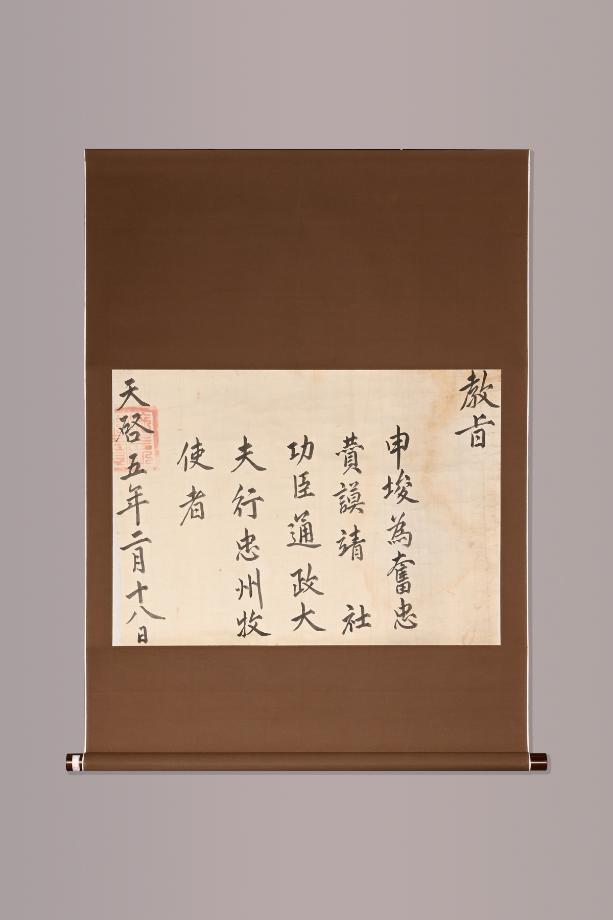 教旨
申埈為奮忠
賛謨靖社
功臣通政大
夫行忠州牧
使者
天啓五年二月十八日